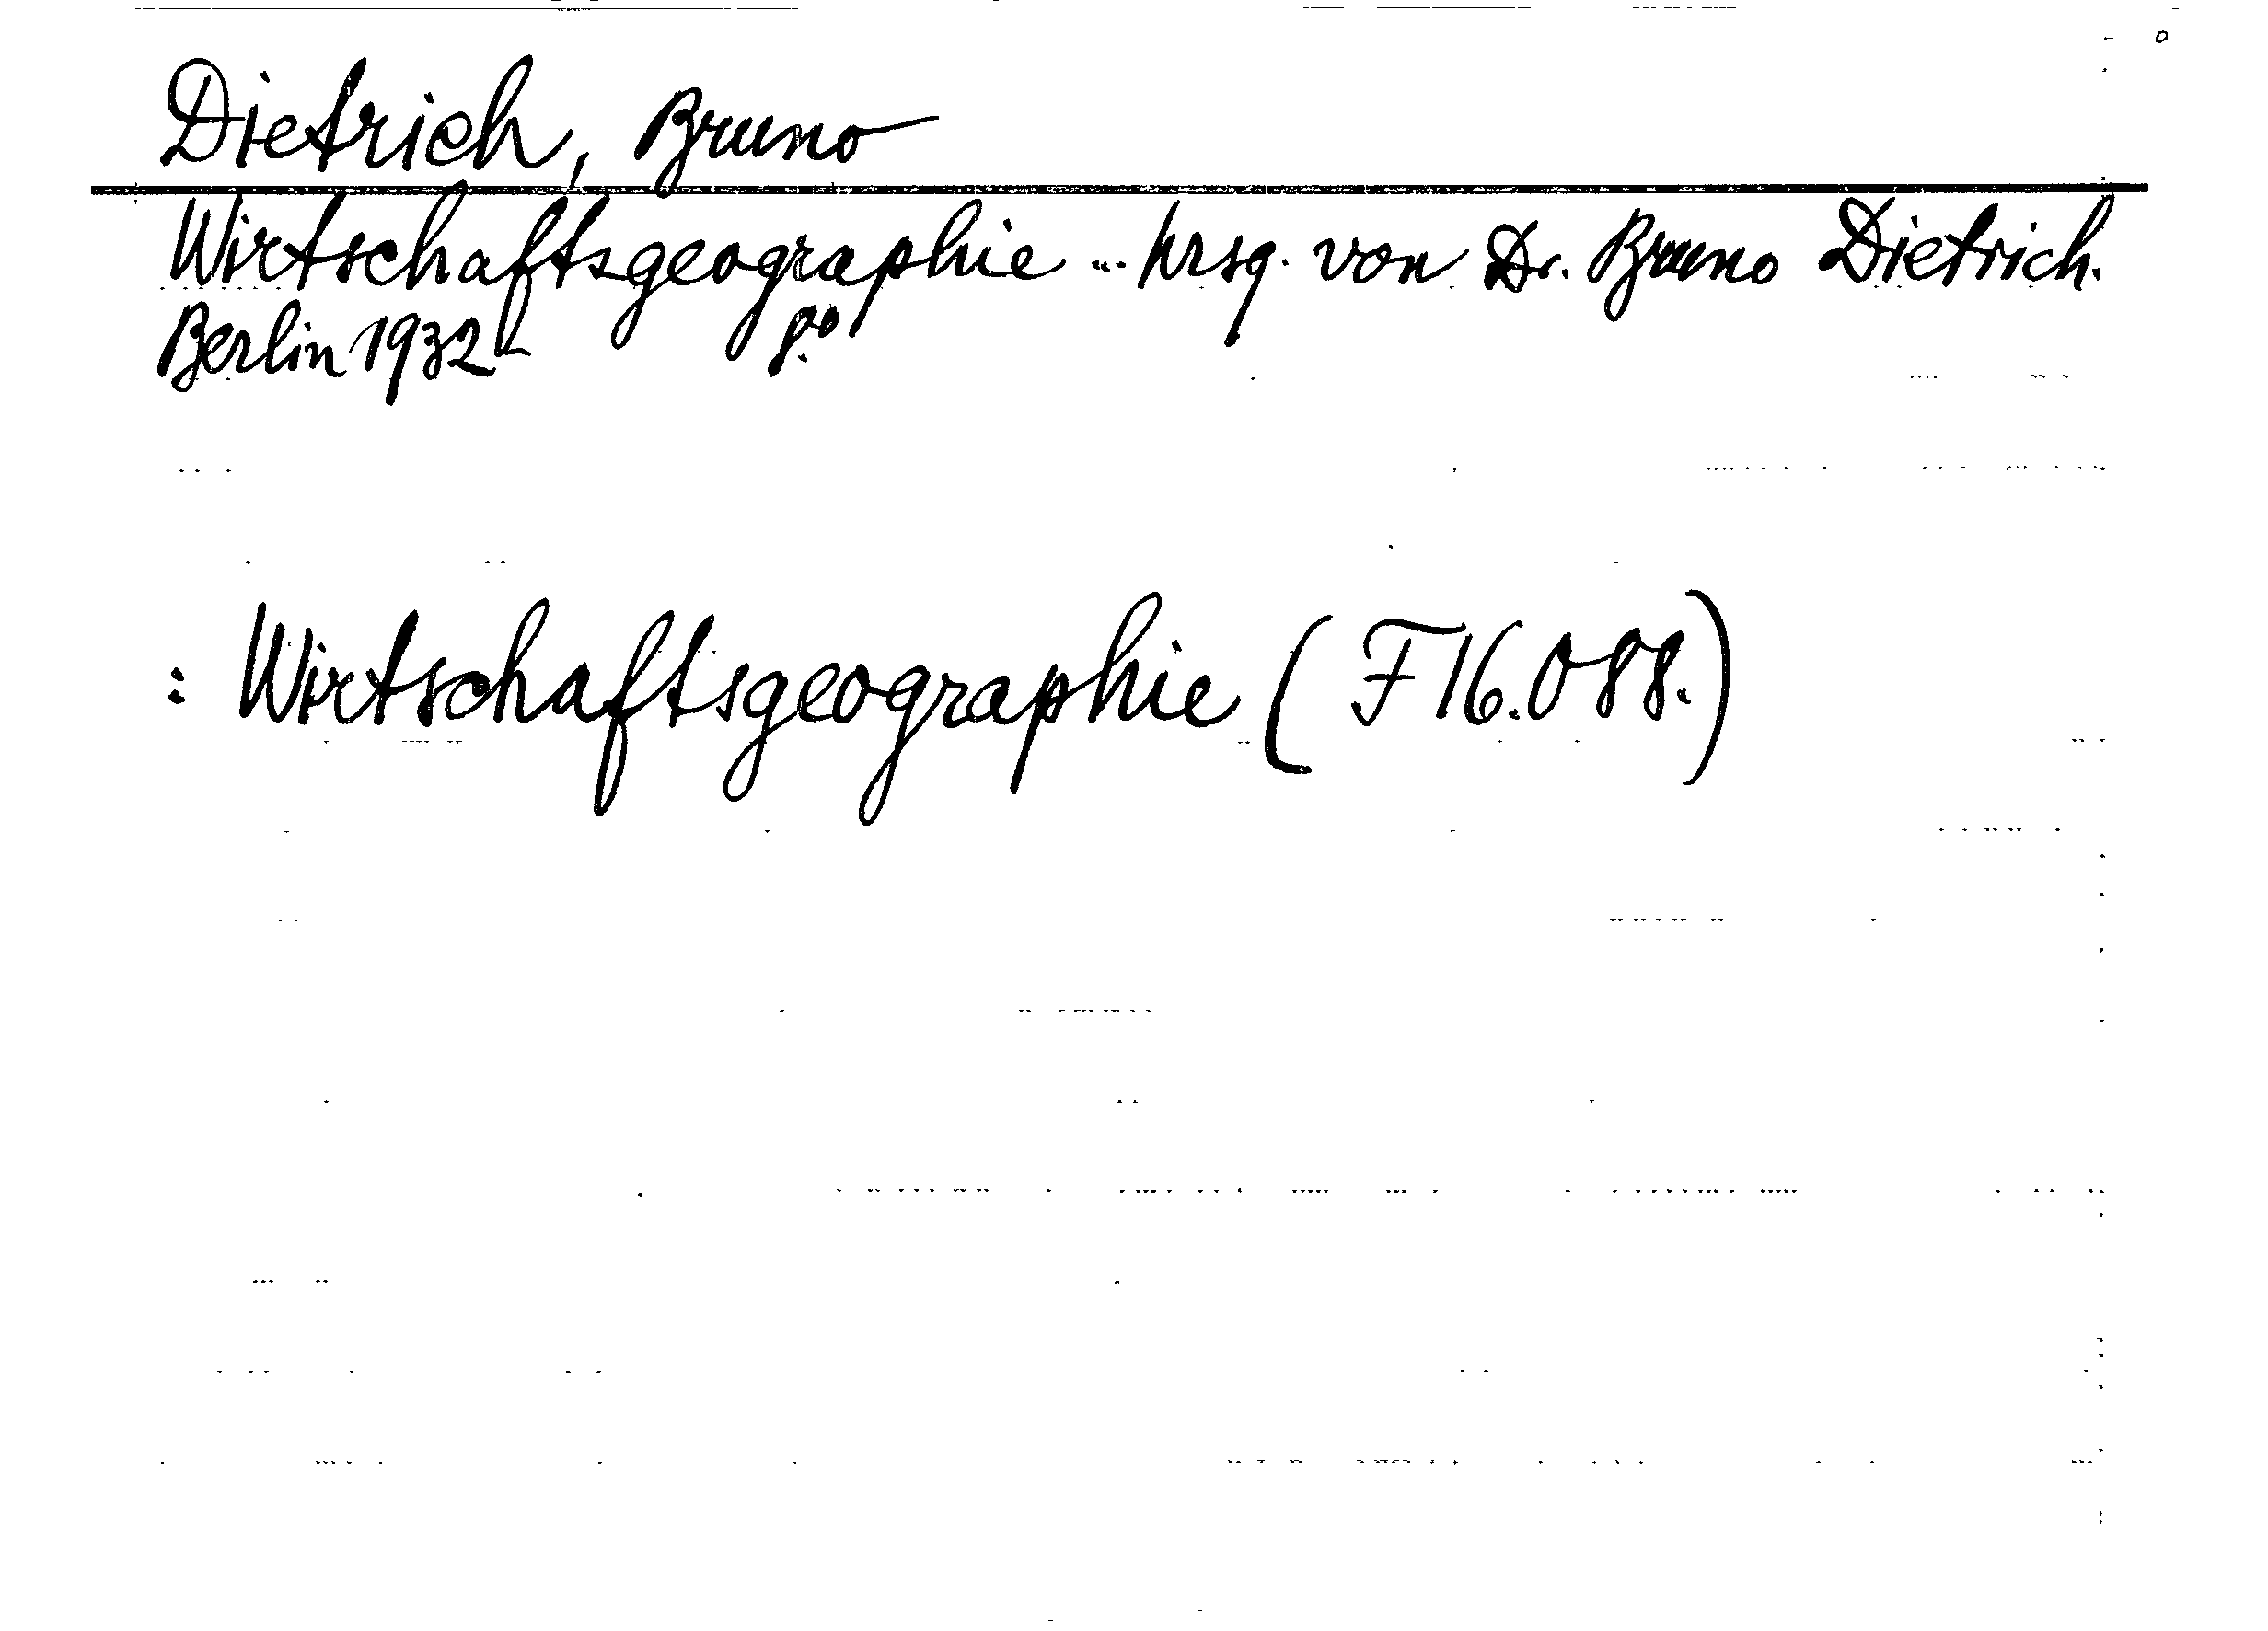 Dietrich, Bruno
Wirtschaftsgeographie ... hrsg. von Dr. Bruno Dietrich.
Berlin 1932 8°
: Wirtschaftsgeographie (F16.088.)